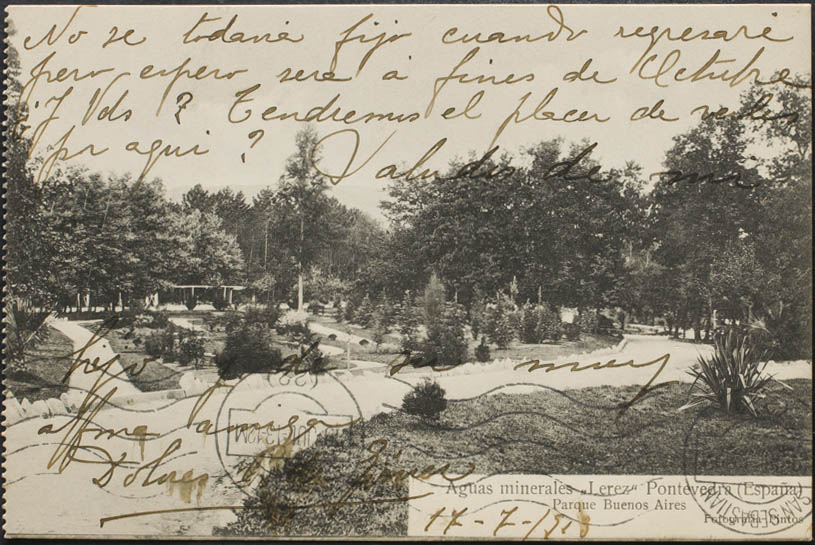 No se todavia fijo cuando regresaré
pero espero sera á fines de Octubre
¿Y Vds? Tendremos el placer de verles
por aqui?
Saludos de mi
hijo y de su muy
affma amiga
Dolores
Aguas minerales „Lerez" Pontevedra (España)
Parque Buenos Aires
17-7-1913
Fotografia Pintos
SAN SEBASTIAN